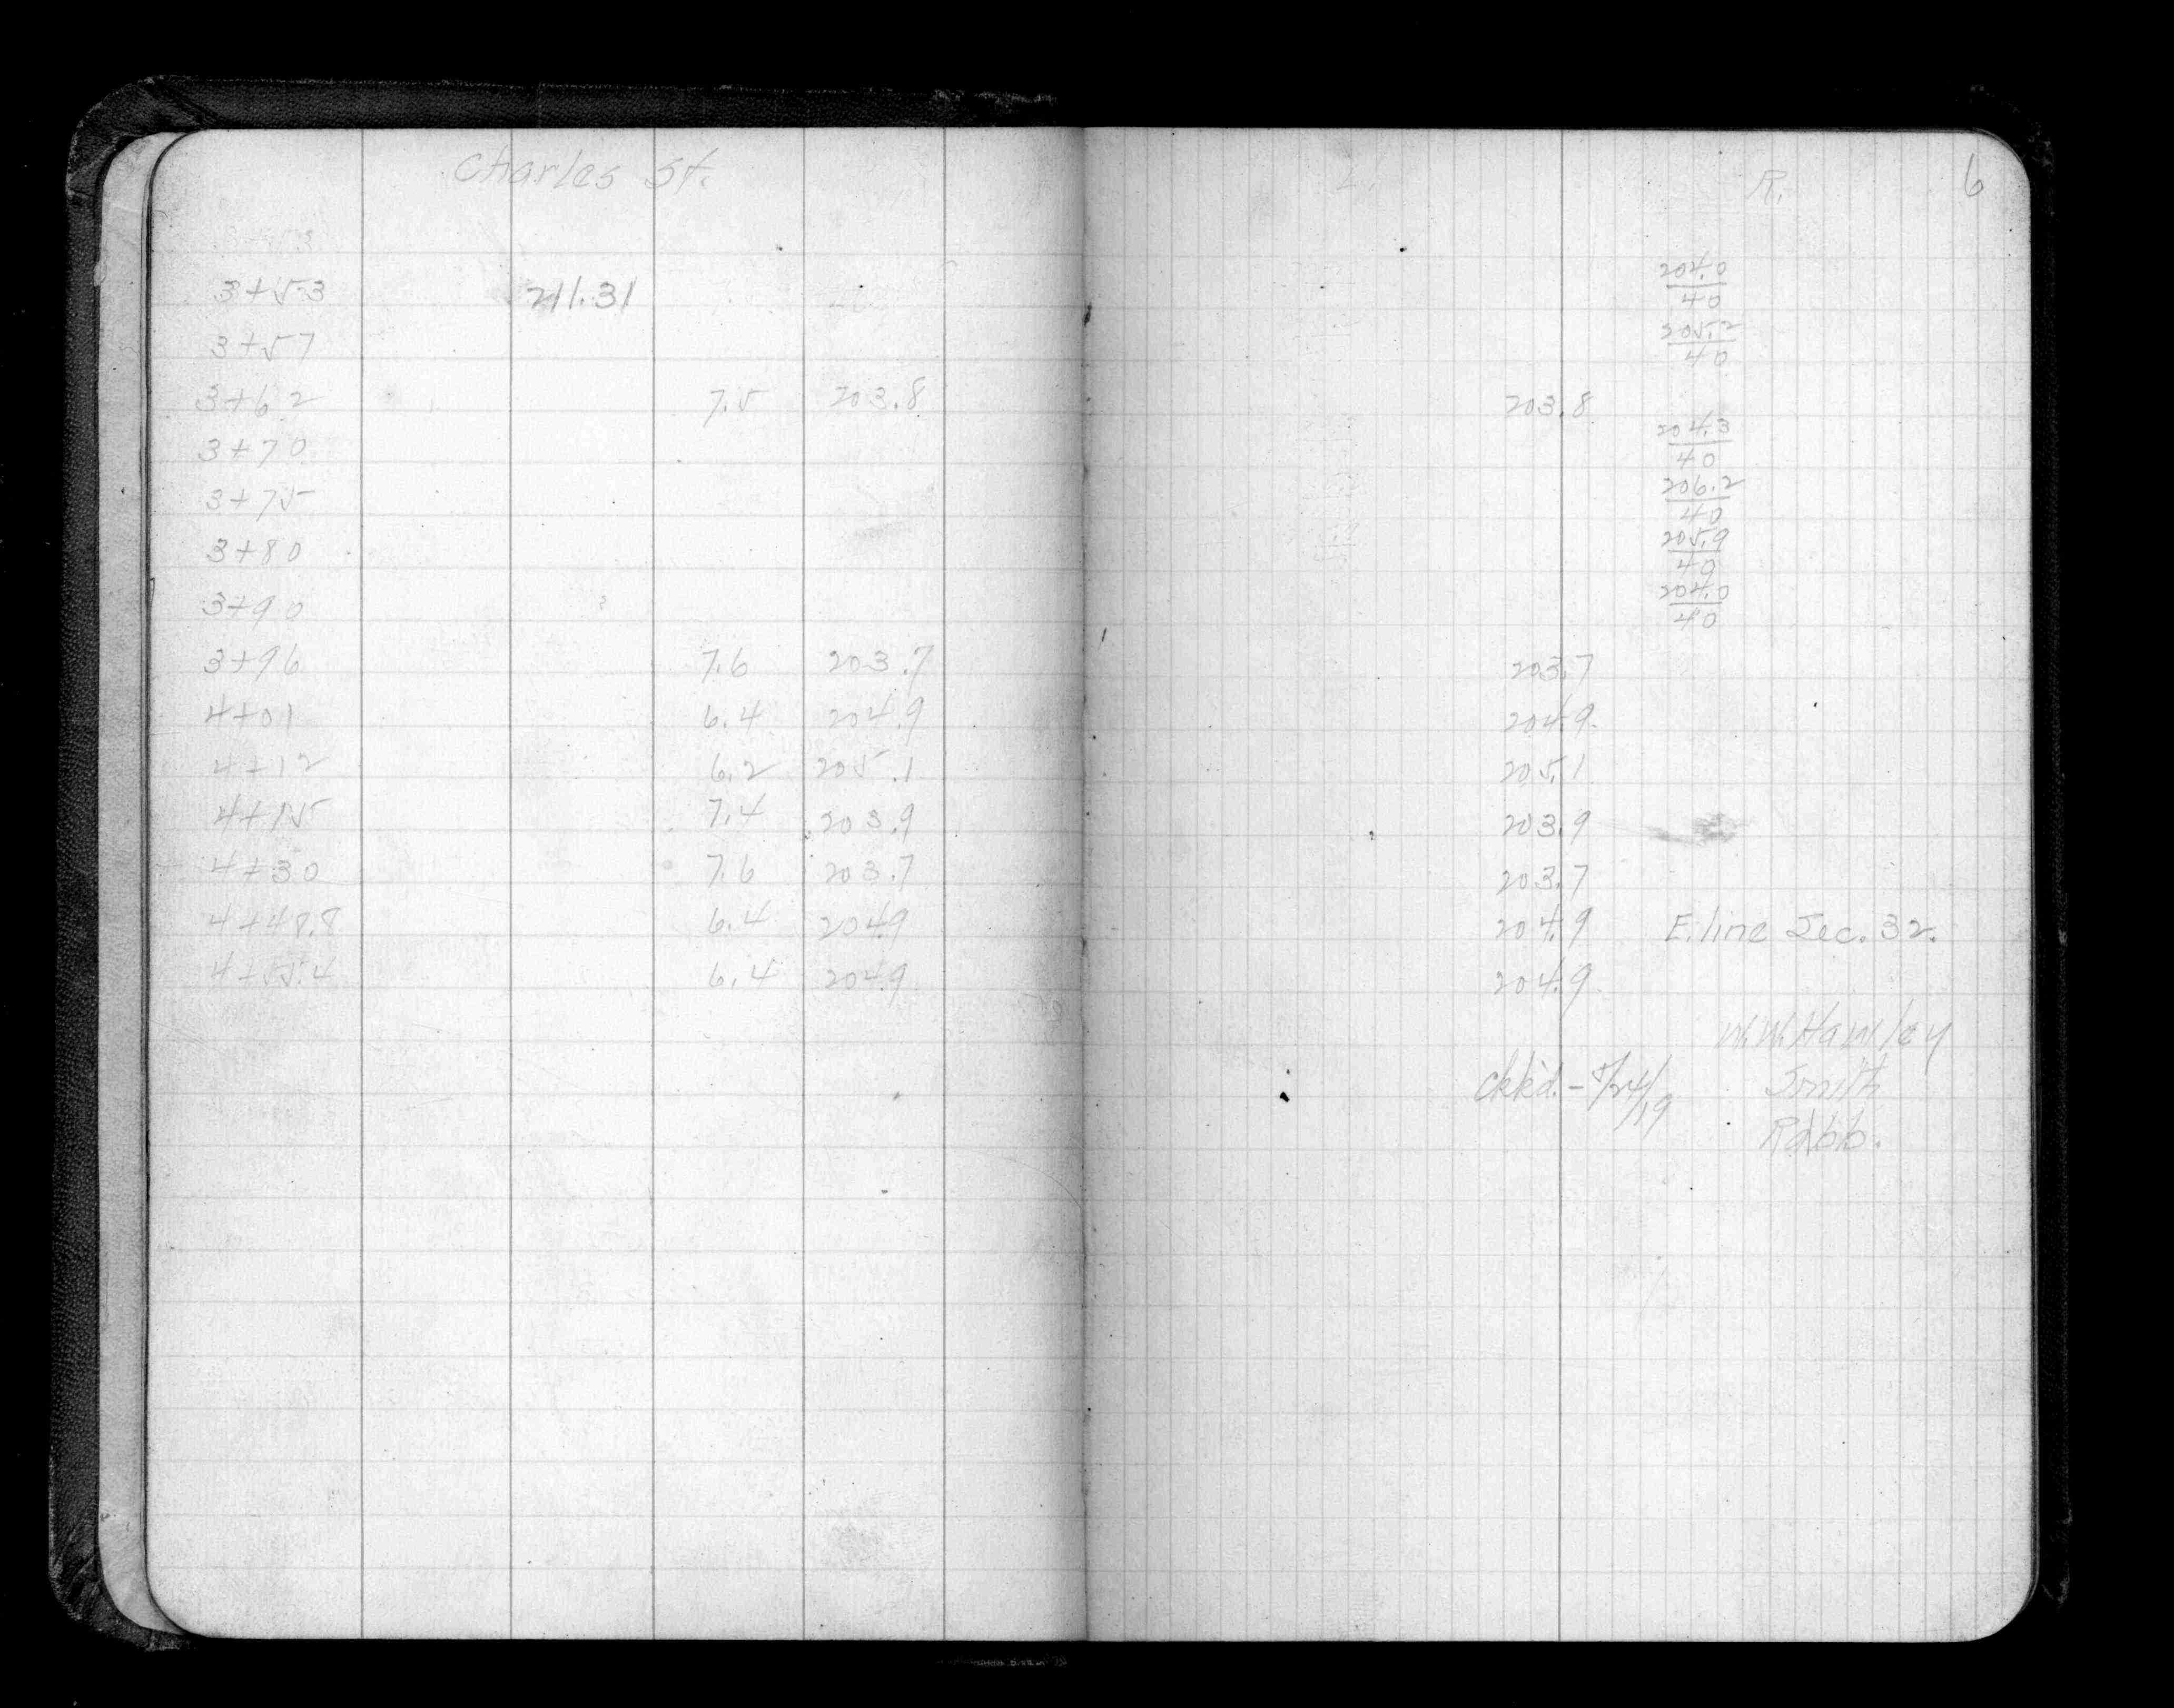 Charles St. L. R. 6
3+53 211.31 204.0/40
3+57 205.2/40
3+62 7.5 203.8 203.8
3+70 204.3/40
3+75 206.2/40
3+80 205.9/40
3+90 204.0/40
3+96 7.6 203.7 203.7
4+01 6.4 204.9 204.9
4+12 6.2 205.1 205.1
4+15 7.4 203.9 203.9
4+30 7.6 203.7 203.7
4+48.8 6.4 204.9 204.9 E. line Sec. 32.
4+55.4 6.4 204.9 204.9
W.W. Hawley
ckk'd. - 5/24/19 Smith
Rabb.